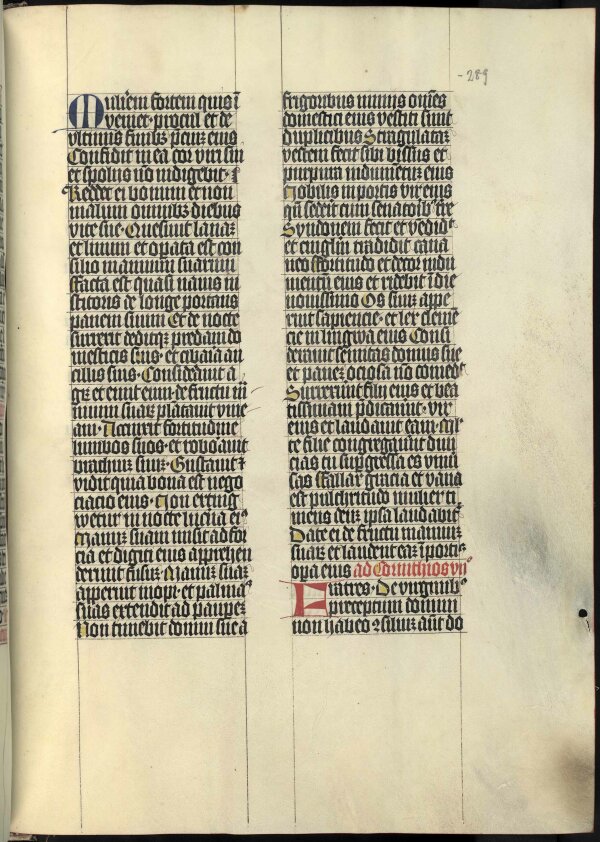 -289
Mulierem fortem quis i
veniet· procul et de
vltimis finibꝫ preciū eius
Confidit in ea cor viri sui
et spoliis nō indigebit·
Reddet ei bonum et non
malum omnibꝫ diebus
vite sue· Quesiuit lanaꝫ
et linum et opata est con
silio manuum suarum
ffacta est quasi nauis in
stitoris de longe portans
panem suum Et de nocte
surrexit deditqꝫ predam do
mesticis suis· et cibaia an
cillis suis· Considerauit a
grū et emit eum· de fructu m̄
nuum suaꝝ plātauit vine
am· Accinxit fortitudine
lumbos suos· et roboauit
brachiuꝫ suuꝫ· Gustauit ⁊
vidit quia bona est nego
ciacio eius· Non exting
wetur in nocte lucna ei⁹
Manuꝫ suam misit ad for
cia et digiti eius apprehen
derunt fusuꝫ· Manuꝫ suaꝫ
apperuit inopi· et palmas
suas extendit ad paupeꝫ
Non timebit domui sue a
frigoribus niuis om̄es
domestici eius vestiti sunt
duplicibus Stragulataꝫ
vestem fecit sibi bissus et
purpura indumētū eius
Nobilis in portis vir eius
qn̄ sederit cum senatoibꝫ tr̄e
Syndonem fecit et vēdid⁹
et cinglm̄ tradidit cana
neo ffortitudo et decor indu
mentū eius et ridebit ī die
nouissimo Os suuꝫ appe
ruit sapiencie· et lex clemē
cie in lingwa eius Consi
derauit semitas domus sue
et paneꝫ ociosa nō comed⁹
Surrexerūt filij eius et bea
tissimam p̄dicauūt· vir
eius et laudauit eam·
te filie congregauūt diui
cias tu suꝑgressa es vniu
sas ffallax gracia et vana
est pulchritudo mulier ti
mens deuꝫ ipsa laudabiꞇ̄
Date ei de fructu manuuꝫ
suaꝝ et laudent eaꝫ ī porti⁹
opa eius ad Corinthios vij
Fratres· De virginibꝫ
preceptum domini
non habeo ꝯsiliuꝫ aūt do